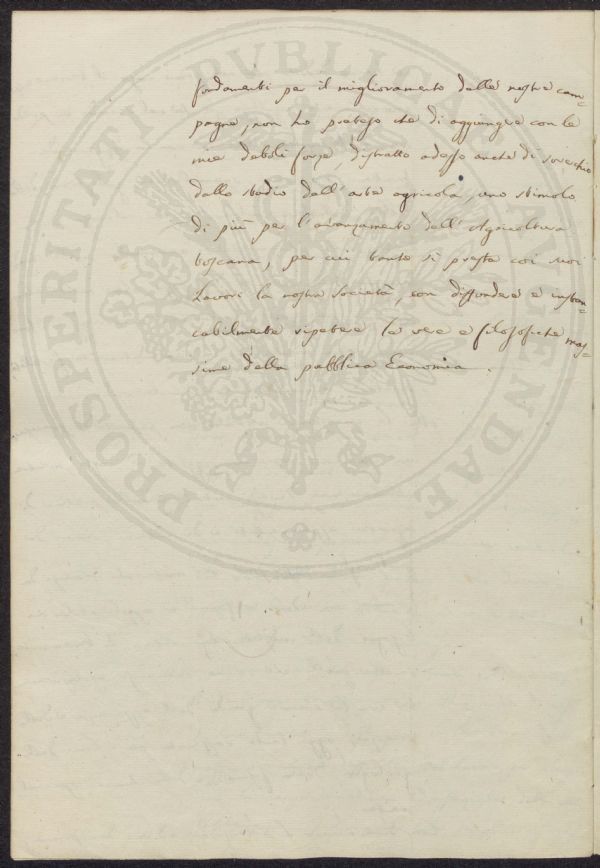 PROSPERITATI PUBLICAE AUGENDAE
fondamenti per il miglioramento delle nostre cam=
pagne, non ho preteso che di aggiungere con le
mie deboli forze, distratto adesso anche di soverchio
dallo studio dell'arte agricola, uno stimolo
di più per l'avanzamento dell'Agricoltura
toscana, per cui tanto si presta coi suoi
lavori la nostra Società, con diffondere e instan=
cabilmente ripetere le vere e filosofiche mas=
sime della pubblica Economia.